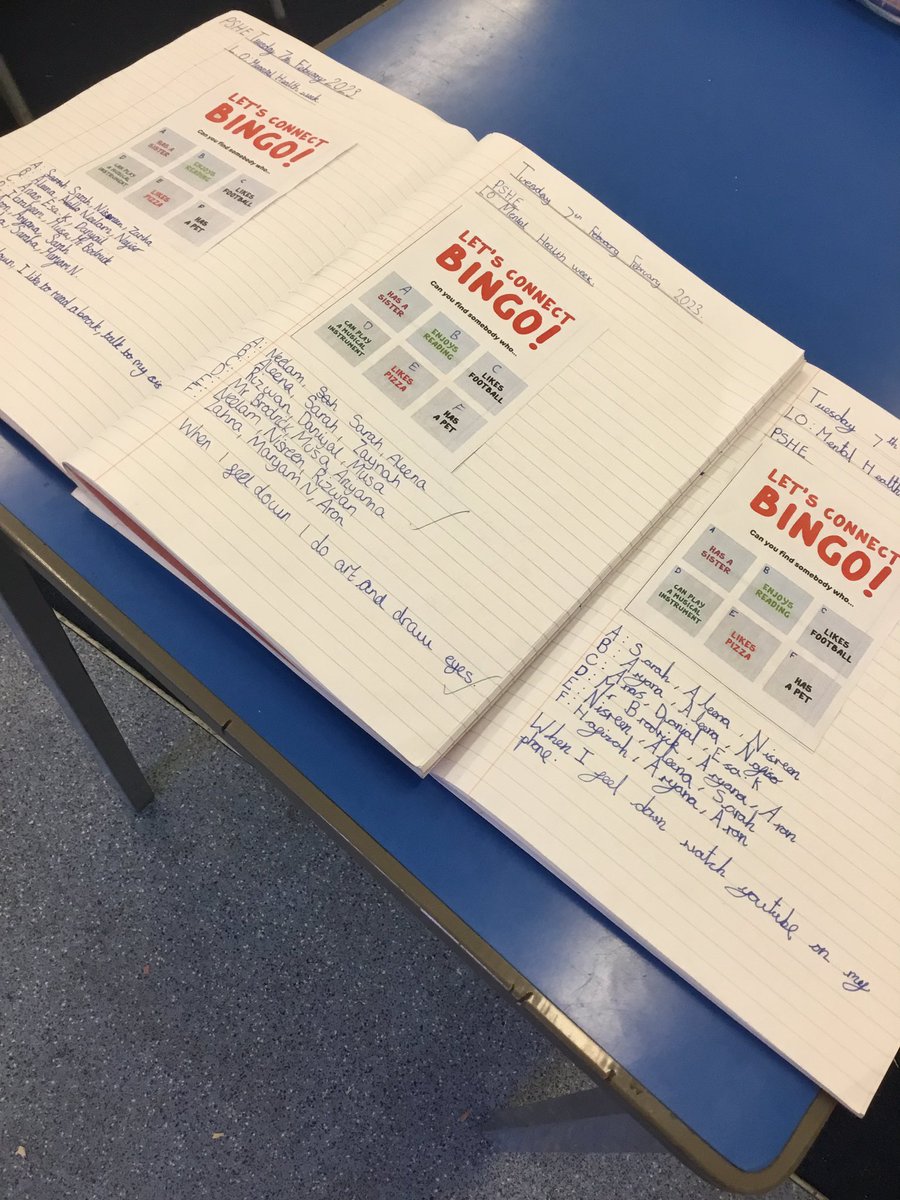 PSHE Tuesday 7th February 2023
L.O Mental Health week
LET'S CONNECT
BINGO!
Can you find somebody who...
A
HAS A
SISTER
B
ENJOYS
READING
C
LIKES
FOOTBALL
D
CAN PLAY
A MUSICAL
INSTRUMENT
E
LIKES
PIZZA
F
HAS
A PET
Sarah, Nisreen, Zahra
Neelam, Nagiso
Esa.K, Danyail
Musa, Mr Brodrick
Aryana, Sarah
Maryam N.
down, I like to read a book, talk to my
Tuesday 7th February February 2023.
PSHE
LO Mental Health week
LET'S CONNECT
BINGO!
Can you find somebody who...
A
HAS A
SISTER
B
ENJOYS
READING
C
LIKES
FOOTBALL
D
CAN PLAY
A MUSICAL
INSTRUMENT
E
LIKES
PIZZA
F
HAS
A PET
A: Neelam, Sarah, Aleena
B: Aleena, Sarah, Zaynah
C: Rizwan, Daniyal, Musa
D: Mr Brodrick, Musa, Aryana
E: Neelam, Nisreen, Rizwan
F: Zahra, Maryam N, Aron
When I feel down I do art and draw eyes.
Tuesday 7th
LO: Mental Health
PSHE
LET'S CONNECT
BINGO!
Can you find somebody who...
A
HAS A
SISTER
B
ENJOYS
READING
C
LIKES
FOOTBALL
D
CAN PLAY
A MUSICAL
INSTRUMENT
E
LIKES
PIZZA
F
HAS
A PET
A: Sarah, Aleena
B: Aryana, Aleena, Nisreen
C: Danyal, Esa K
D: Mr Brodrick, Aryana, Aron
E: Nisreen, Aleena, Sarah
F: Aryana, Aron
When I feel down watch youtube on my
phone.